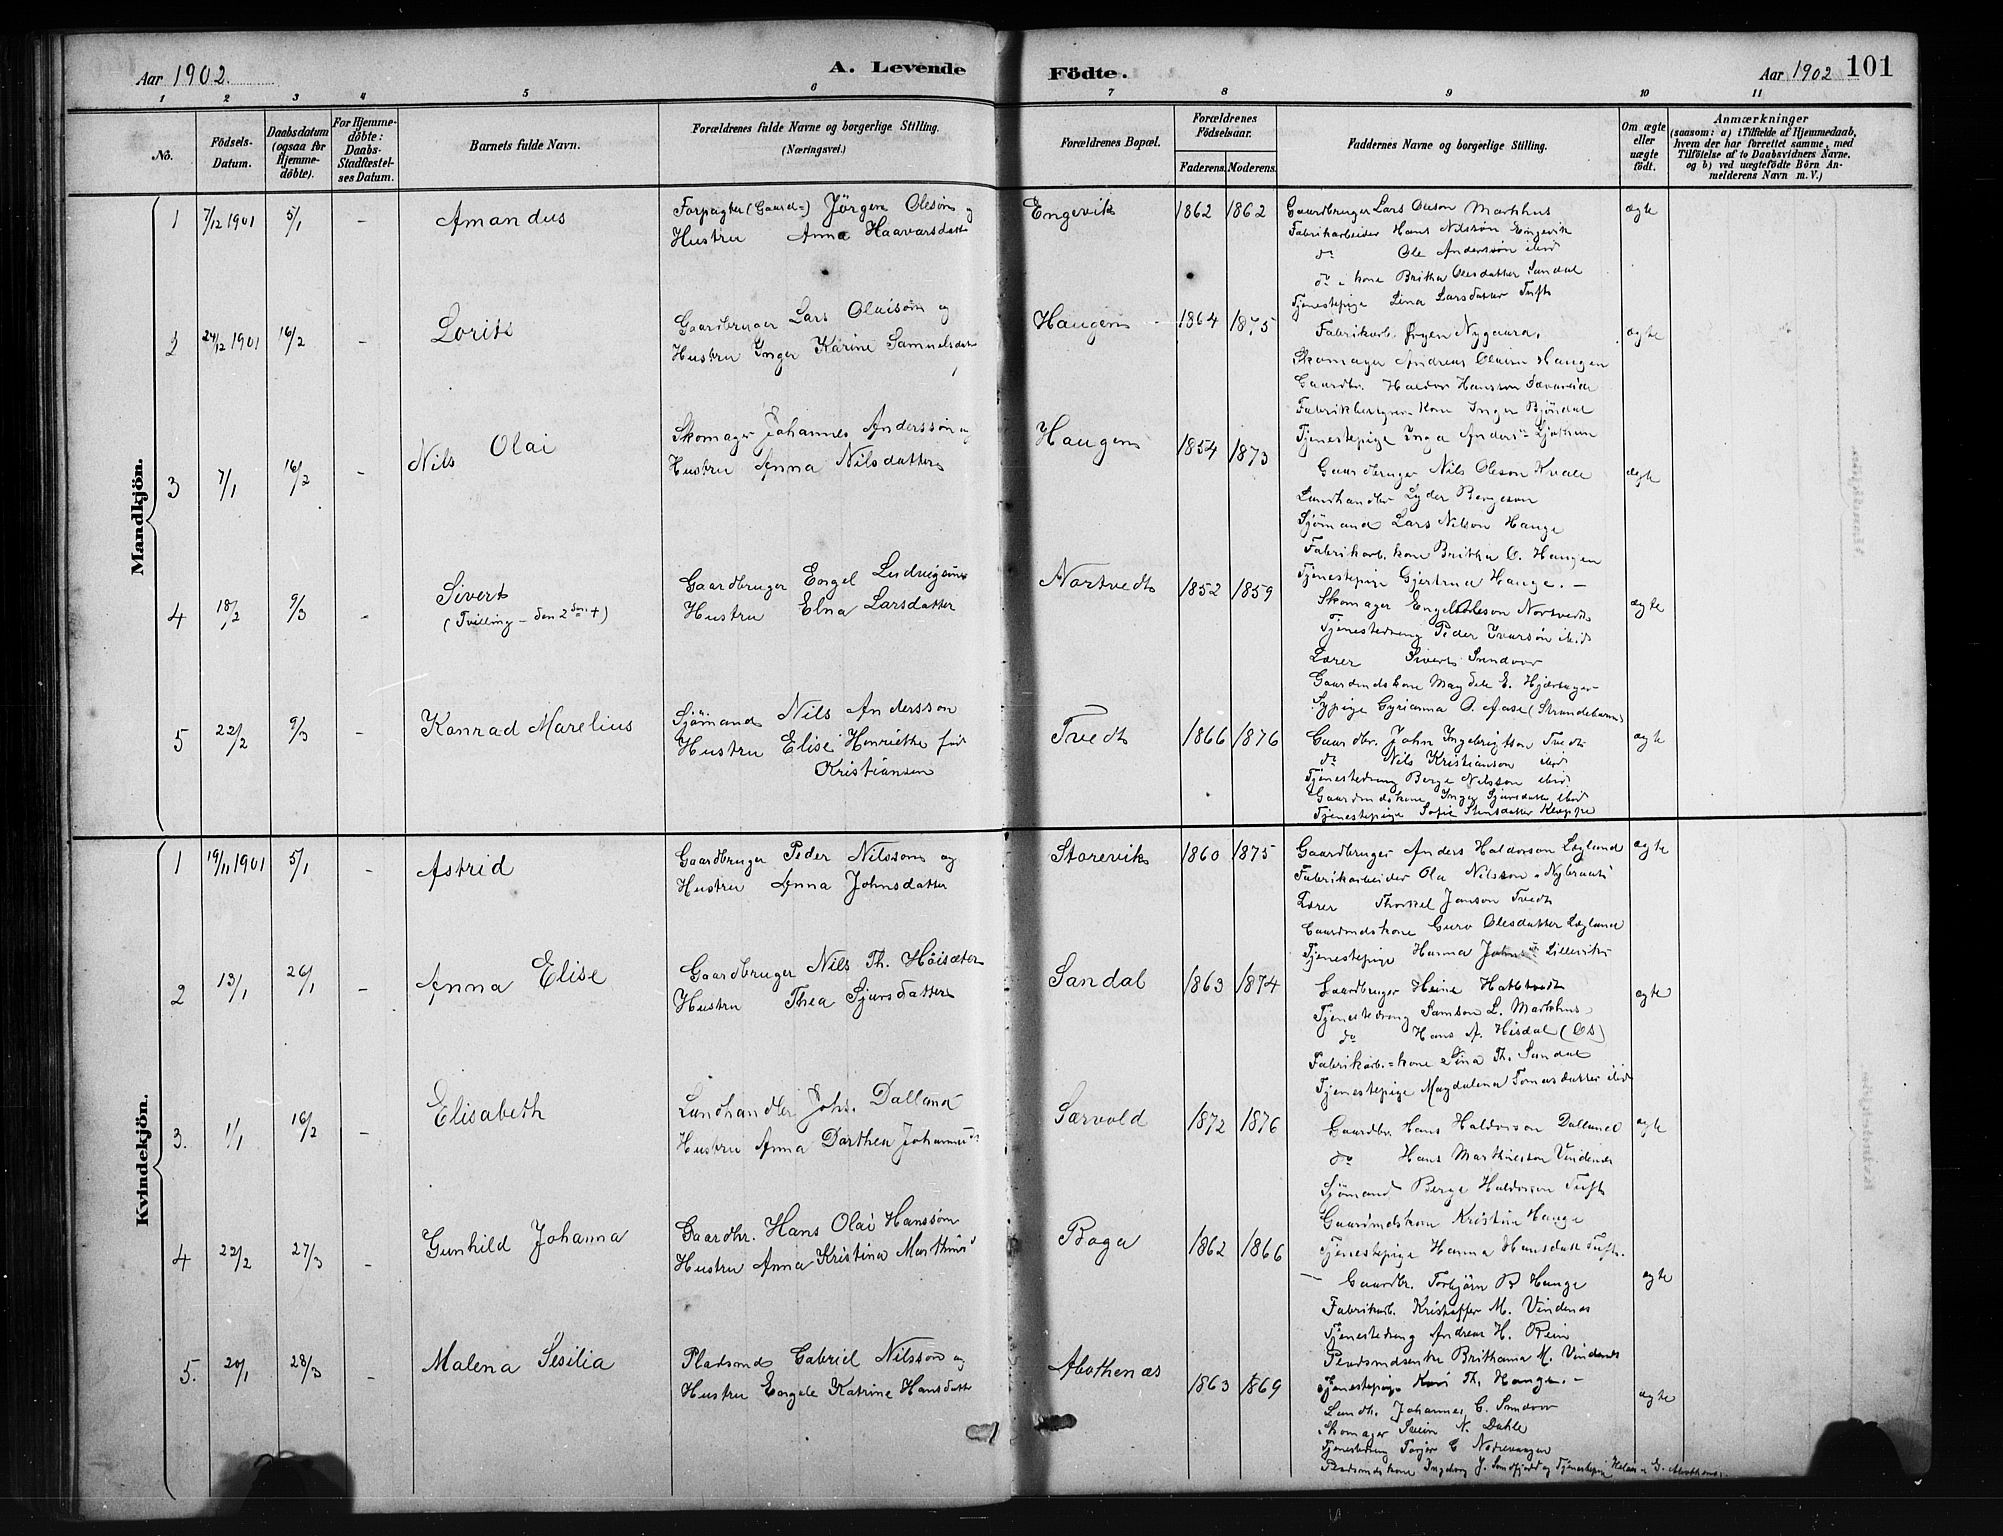 Aar 1902.
A. Levende
Födte.
Aar 1902
101
1 2 3 4 5 6 7 8 9 10 11
No.
Födsels-Datum.
Daabsdatum (ogsaa for Hjemme-döbte).
For Hjemme-döbte: Daabs-Stadfæstel-ses Datum.
Barnets fulde Navn.
Forældrenes fulde Navne og borgerlige Stilling. (Næringsvei.)
Forældrenes Bopæl.
Forældrenes Födselsaar.
Faderens. Moderens.
Faddernes Navne og borgerlige Stilling.
Om ægte eller uægte födt.
Anmærkninger
(saasom: a) i Tilfælde af Hjemmedaab, hvem der har forrettet samme, med Tilföielse af to Daabsvidners Navne, og b) ved uægtefödte Börn An-melderens Navn m. V.)
Mandkjön.
1 7/12 1901 5/1 - Amandus
Forpagter (Gaard=) Jörgen Olesön og
Hustru Anna Haavarsdatter
Engevik 1862 1862
Gaardbruger Lars Oleson Markhus
Fabrikarbeider Hans Nilssön Engevik
do Ole Anderssön ibid
do - kone Britha Olesdatter Sandal
Tjenestepige Lina Larsdatter Tuft
ægte
2 24/12 1901 16/2 - Lorits
Gaardbruger Lars Olaisön og
Hustru Inger Karine Samuelsdatr
Haugen 1864 1875
Fabrikarb. Örjen Nygaard.
Skomager Andreas Olaisen Haugen
Gaardbr. Haldor Hansson Sævareide
Fabrikbestyrer- Kone Inger Bjöndal
Tjenestepige Inga Anders
ægte
3 7/1 16/2 - Nils Olai
Skomager Johannes Anderssön og
Hustru Anna Nilsdatter
Haugen 1854 1873
Gaardbruger Nils Oleson Kvale
Landhandler Lyder Bergeson
Sjömand Lars Nilson Hauge
Fabrikarb. kone Britha O. Haugen
Tjenestepige Gjertrud Hauge. -
ægte
4 18/2 9/3 - Sivert
(Tvilling - den 2den +)
Gaardbruger Engel Ludvigsen
Hustru Elna Larsdatter
Nortvedt 1852 1859
Skomager Engel Oleson Nortvedt
Tjenestedreng Peder Ivarsön ibid
Lærer Sivert Sundvor
Gaardmdskone Magdele E. Hjærtager
Sypige Gyrianna O. Aase (Strandebarm)
ægte
5 22/2 9/3 - Konrad Marelius
Sjömand Nils Andersson
Hustru Elise Henriette föd
Kristiansen
Tvedt 1866 1876
Gaardbr. John Ingebrigtson Tvedt
do Nils Kristianson ibid
Tjenestedreng Berge Nilsson ibid
Gaardmdskone Inger Sjursdatter ibid
Tjenestepige Sofie Stensdatter Kleppe
ægte
Kvindekjön.
1 19/11 1901 5/1 - Astrid
Gaardbruger Peder Nilsson og
Hustru Anna Johnsdatter
Storevik 1860 1875
Gaardbruger Anders Haldorson Lægland
Fabrikarbeider Ola Nilsson Nybraat
Lærer Thorkel Janson Tvedt
Gaardmdskone Guro Olesdatter Lægland
Tjenestepige Hanna Lillevik
ægte
2 13/1 26/1 - Anna Elise
Gaardbruger Nils Th. Höisæter
Hustru Thea Sjursdatter
Sandal 1863 1874
Gaardbruger Heine Hattvedt
Tjenestedreng Samson L. Markhus
do Hans A. Hisdal (Os)
Fabrikarb.-kone Sina Th. Sandal
Tjenestepige Magdalena Tomasdatter ibid
ægte
3. 1/1 16/2 - Elisabeth
Landhandler Johs. Dalland
Hustru Anna Dorthea Johannesd
Sørvold 1872 1876
Gaardbr. Hans Haldorson Dalland
do Hans Mathiesson Vindenes
Sjömand Berge Haldorson Tuft
Gaardmdskone Kristine Hauge
Tjenestepige Hanna Hansdatt Tuft.
ægte
4 22/2 27/3 - Gunhild Johanna
Gaardbr. Hans Olai Hanssön
Hustru Anna Kristina Marthinusd
Boga 1862 1866
- Gaardbr. Torbjörn B Hauge
Fabrikarb. Kristoffer M. Vindenes
Tjenestedreng Andreas H. Rein
Pladsmdsenke Brithania M. Vindenes
Tjenestepige Kari Th. Hauge. -
ægte
5. 20/1 28/3 - Malena Sesilia
Pladsmd Gabriel Nilssön og
Hustru Engele Katrine Hansdatter
Alvthenæs 1863 1869
Landh. Johannes C. Sundvor
Skomager Svein N. Dahle
Tjenestedreng Torjer G Nodrevaagen
Pladsmdskone Ingeborg J. Sundfjord og Tjenestepige Helene G.
ægte